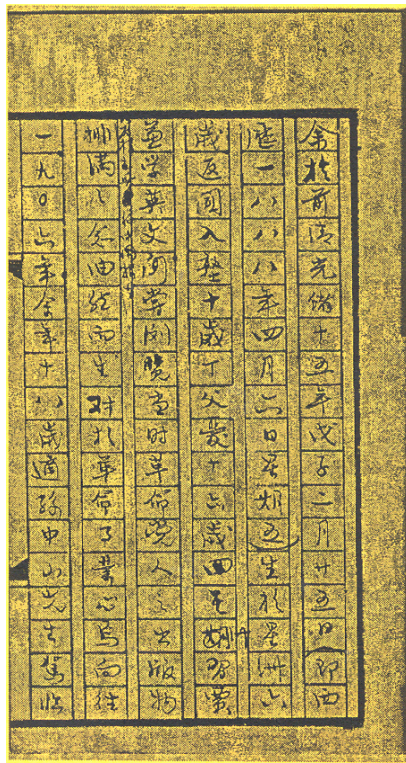 余於前清光緒十五年戊子二月廿五日(即西
歷一八八八年四月六日星期五)生於星洲六
歲返國入塾十歲丁父憂十六歲習業
並學英文嘗閱覽當时革命党人之出版物
满之念由然而生对於革命事業心焉向往
一九〇六年余年十八歲適孫中山先生駕臨